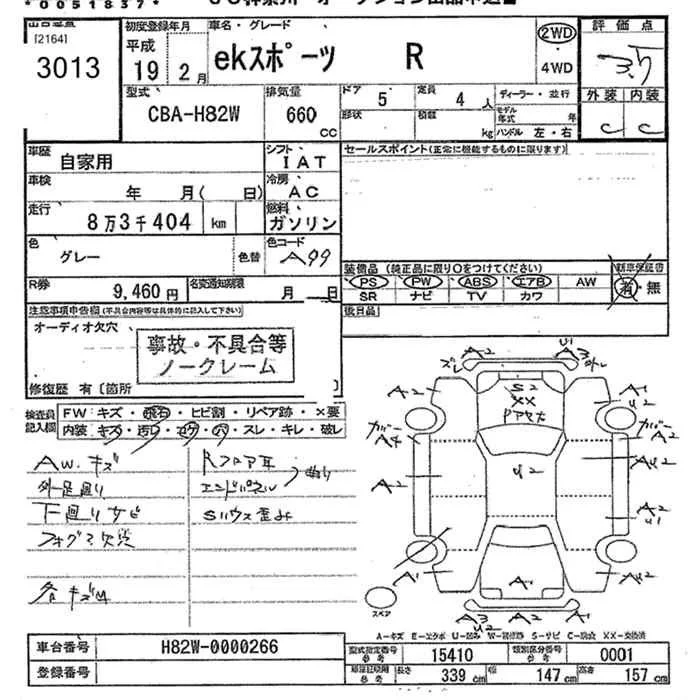 *0051837*
[2164]
3013
初度登録年月 車名・グレード 評価点
平成 19 2月 ekスポーツ R 2WD 4WD 3.5
外装 内装
C C
型式 排気量 ドア 5 定員 4人 ディーラー・並行
CBA-H82W 660 CC 形状 積載 kg モデル年式 年 ハンドル 左・右
車歴 自家用 シフト IAT セールスポイント(正常に機能するものに限ります)
車検 年 月( 日) 冷房 AC
走行 8万3千404 km 燃料 ガソリン
色 グレー 色替 色コード A99
装備品(純正品に限り○をつけてください) 新車保証書
PS PW ABS エアB AW 有・無
SR ナビ TV カワ
R券 9,460円 名変通知期限 月 日
後日品
注意事項申告欄(不具合内容等は具体的に記入して下さい)
オーディオ欠穴
事故・不具合等
ノークレーム
修復歴 有〔箇所
検査員記入欄 FW キズ・飛石・ヒビ割・リペア跡・×要
内装 キズ・汚レ・コゲ・穴・スレ・キレ・破レ
AW.キズ
外足廻り
下廻りサビ
フォグマ欠
各キズM
Rフロア耳
エンドパネル 曲り
Sハウス歪み
U1
A2 A3
ズレ
A2 S2 A1
XX U2
ガバー ガバー
A4 A2
U2 AU2
A2 A2
U1
A1 A1 A2
スペア
A3 A2
U2
A-キズ E-エクボ U-凹み W-補修跡 S-サビ C-腐食 XX-交換済
車台番号 H82W-0000266
登録番号
型式指定番号 参考 15410 類別区分番号 参考 0001
参考 長さ 339cm 幅 147cm 高さ 157cm